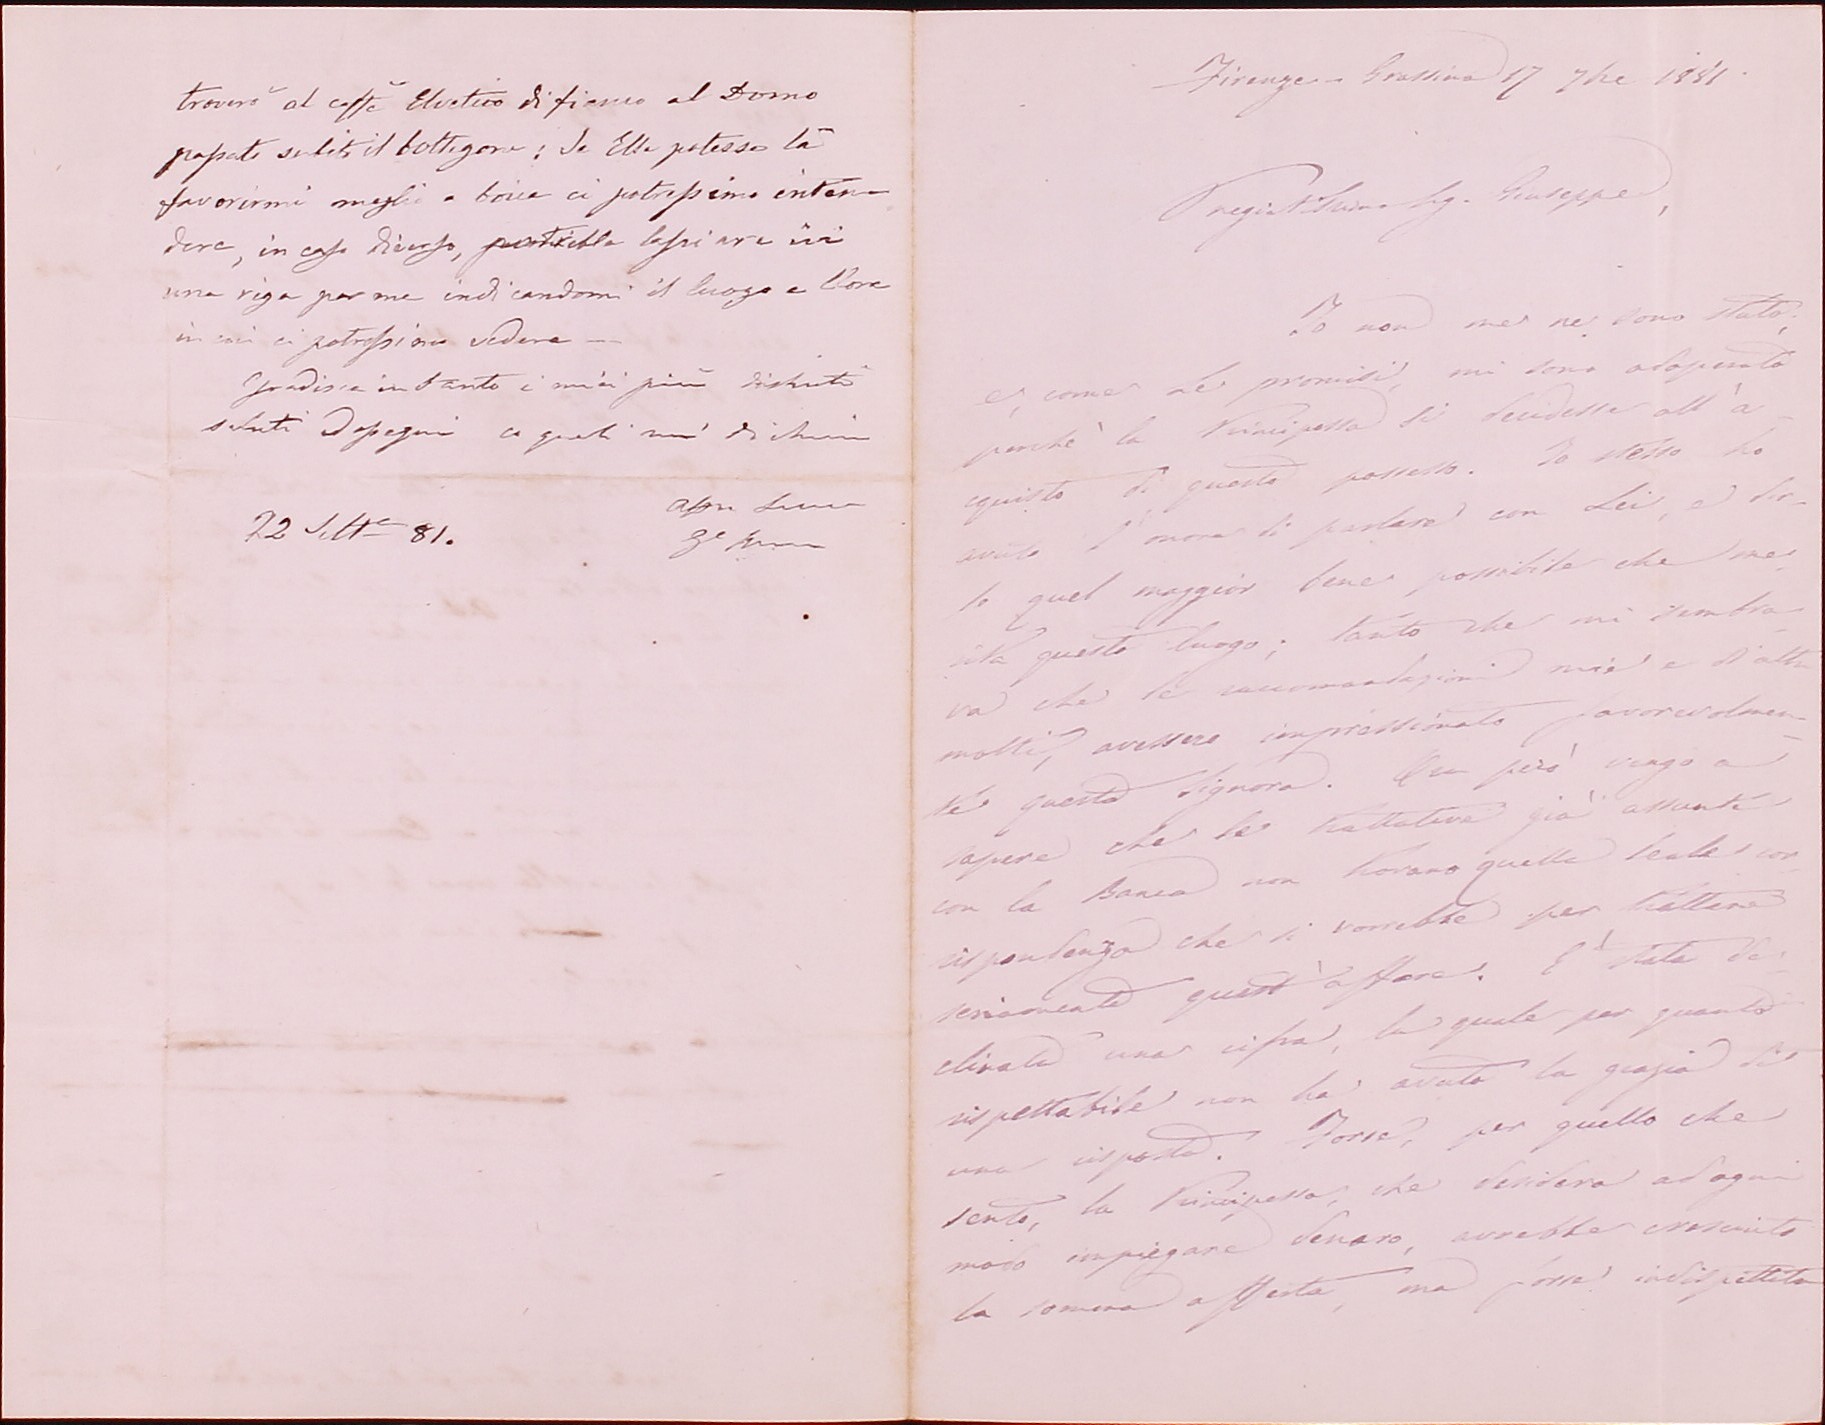 troverò al caffè Elvetico di fianco al Domo
passato subito il bottegone; Se Ella potesse là
favorirmi meglio a voce ci potressimo inten-
dere, in caso diverso, lasciare ivi
una riga per me indicandomi il luogo e l'ora
in cui ci potressimo vedere —
Gradisca intanto i miei più distinti
saluti d'ossequi co quali mi dichiaro
22 Sette 81.
Firenze - Grassina 17 7bre 1881.
Pregiatissimo Sig. Giuseppe,
Io non me ne sono stato,
e, come Le promisi, mi sono adoperato
perchè la Principessa si decidesse all'a-
cquisto di questo possesso. Io stesso ho
avuto l'onore di parlare con Lei, e dir-
le quel maggior bene possibile che me-
rita questo luogo; tanto che mi sembra-
va che le raccomandazioni mie e d'altri
molti, avessero impressionato favorevolmen-
te questa Signora. Ora però vengo a
sapere che le trattative già assunte
con la Banca non trovano quella leale cor-
rispondenza che si vorrebbe per trattare
seriamente quest'affare. È stata de-
clinata una cifra, la quale per quanto
rispettabile non ha avuto la grazia di
una risposta. Forse, per quello che
sento, la Principessa, che desidera ad ogni
modo impiegare denaro, avrebbe cresciuto
la somma offerta, ma forse indispettita